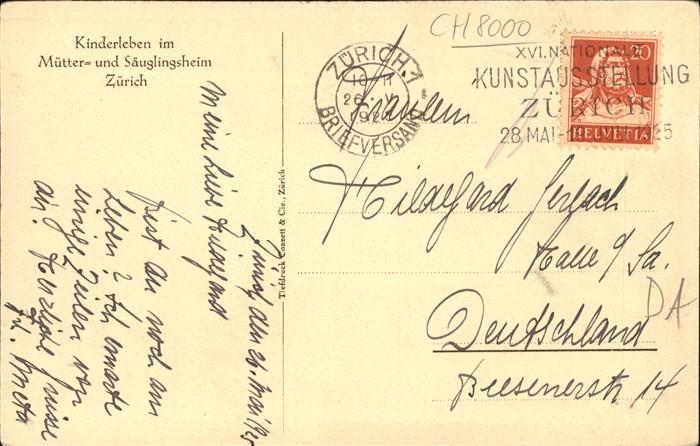 Kinderleben im
Mütter- und Säuglingsheim
Zürich
Zürich, den 26. Mai 1925
Meine liebe Hildegard
Bist du noch am
Leben? Ich erwarte
einige Zeilen von
dir. Herzliche Grüsse
Frl. Meta
Tiefdruck Conzett & Cie., Zürich
CH 8000
ZÜRICH.1
26. V.
BRIEFVERSAND
XVI. NATIONALE
KUNSTAUSSTELLUNG
ZÜRICH
28. MAI
20
HELVETIA
Fräulein
Hildegard Gerlach
Halle a/Sa.
Deutschland
Beesenerstr. 14
DA